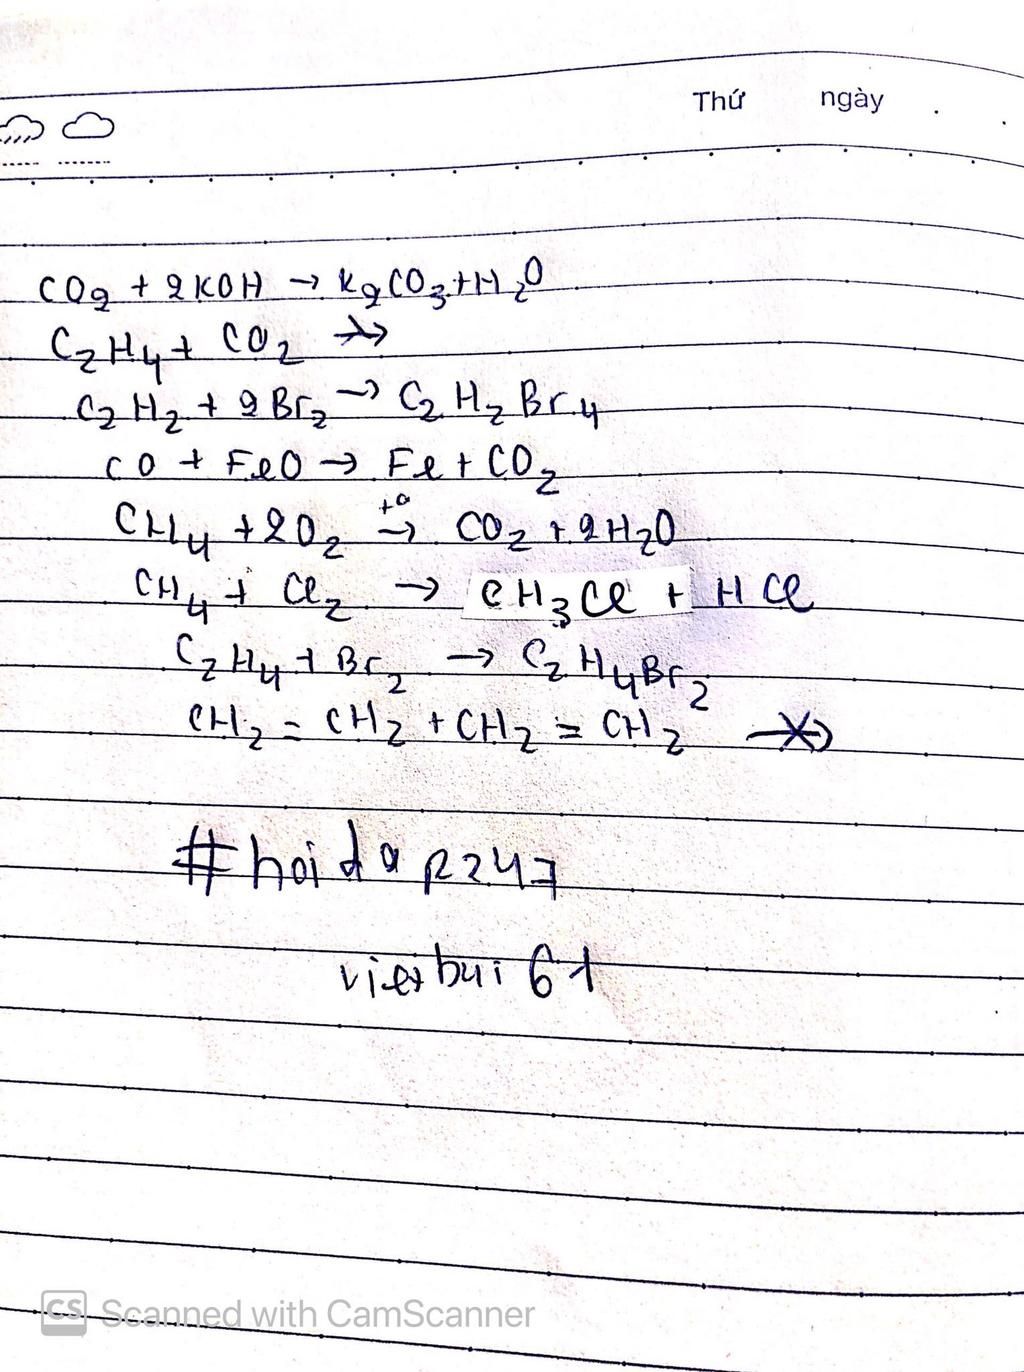 Thứ ngày
CO₂ + 2KOH → K₂CO₃ + H₂O
C₂H₄ + CO₂ ↛
C₂H₂ + 2Br₂ → C₂H₂Br₄
CO + FeO → Fe + CO₂
CH₄ + 2O₂ →(t⁰) CO₂ + 2H₂O
CH₄ + Cl₂ → CH₃Cl + HCl
C₂H₄ + Br₂ → C₂H₄Br₂
CH₂ = CH₂ + CH₂ = CH₂ ↛
#hoidap247
vietbui61
CS Scanned with CamScanner